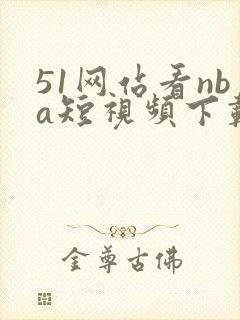 51网佔看nb
a短視頻下載
金尊古佛